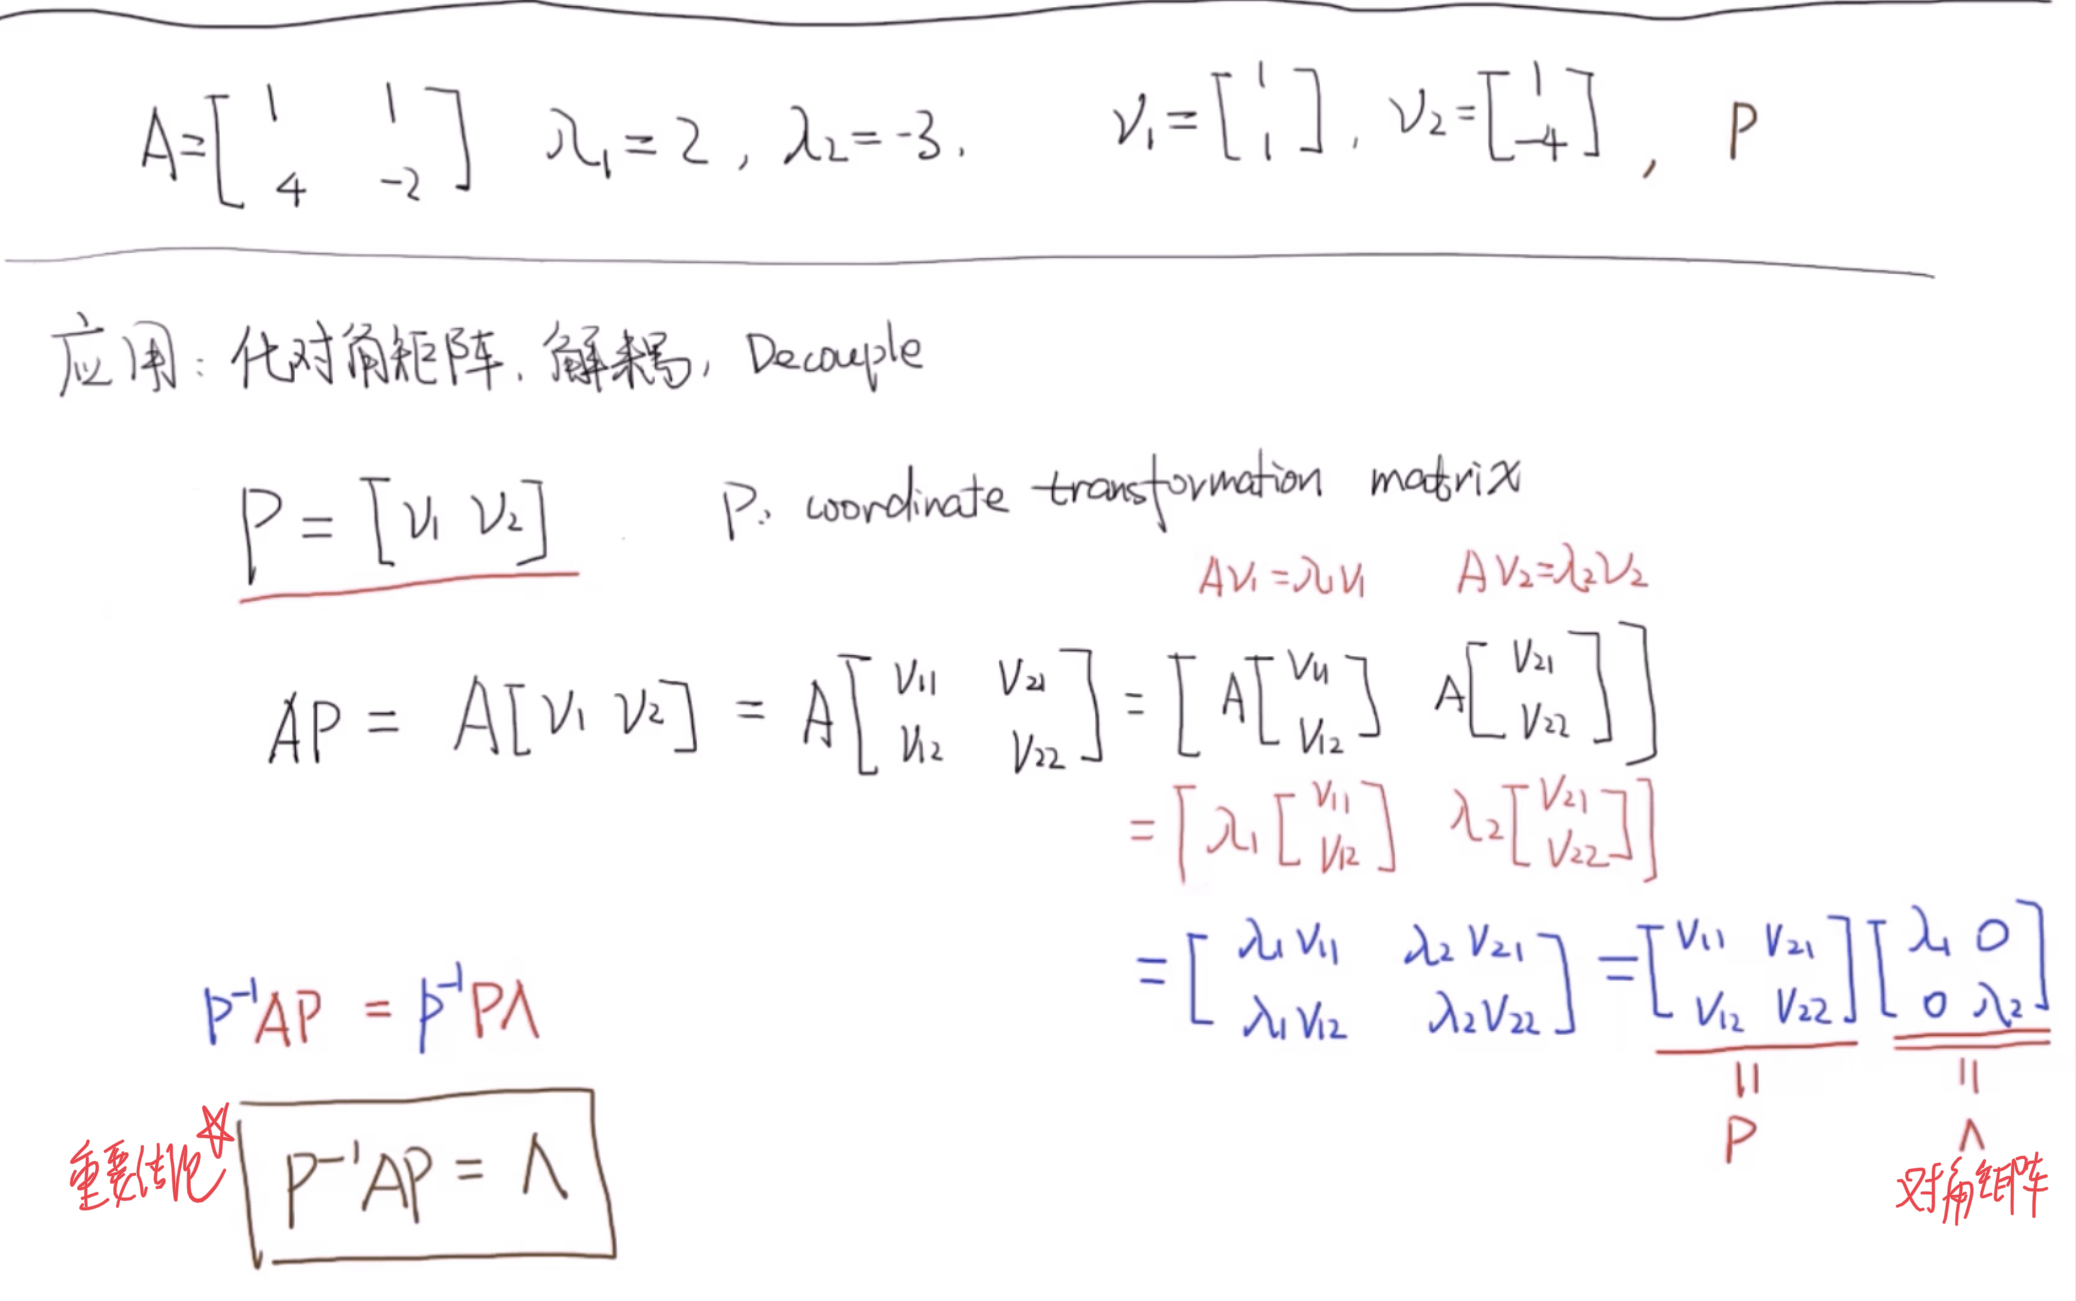 A=[1 1; 4 -2] λ₁=2, λ₂=-3. v₁=[1; 1], v₂=[1; -4], P
应用: 化对角矩阵, 解耦, Decouple
P=[v₁ v₂] P: coordinate transformation matrix
Av₁=λ₁v₁ Av₂=λ₂v₂
AP = A[v₁ v₂] = A[v₁₁ v₂₁; v₁₂ v₂₂] = [A[v₁₁; v₁₂] A[v₂₁; v₂₂]]
= [λ₁[v₁₁; v₁₂] λ₂[v₂₁; v₂₂]]
= [λ₁v₁₁ λ₂v₂₁; λ₁v₁₂ λ₂v₂₂] = [v₁₁ v₂₁; v₁₂ v₂₂][λ₁ 0; 0 λ₂]
P⁻¹AP = P⁻¹PΛ
= P
= Λ
对角矩阵
重要结论☆
P⁻¹AP = Λ